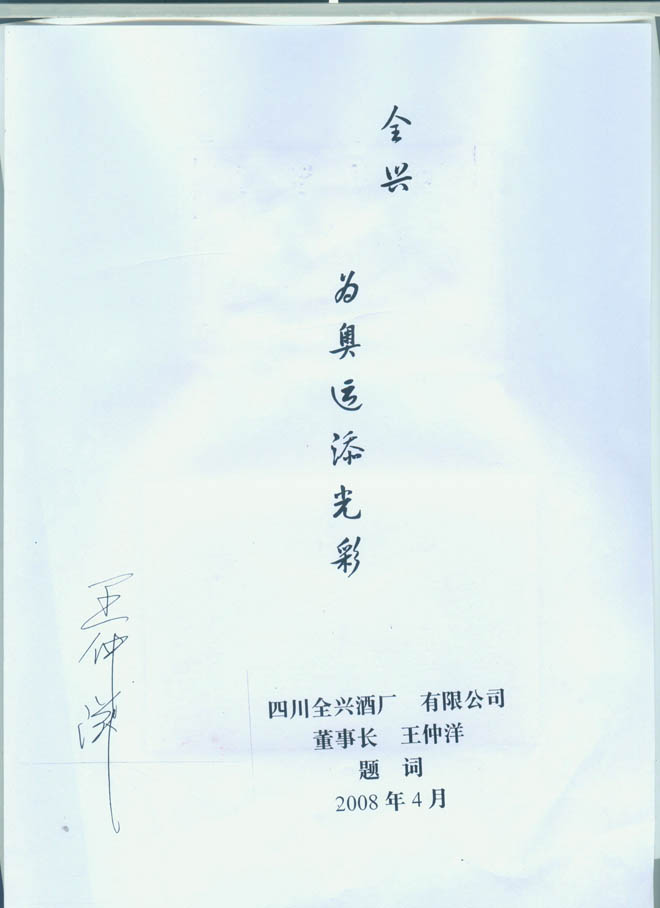 全兴
为奥运添光彩
王仲洋
四川全兴酒厂 有限公司
董事长 王仲洋
题 词
2008年4月